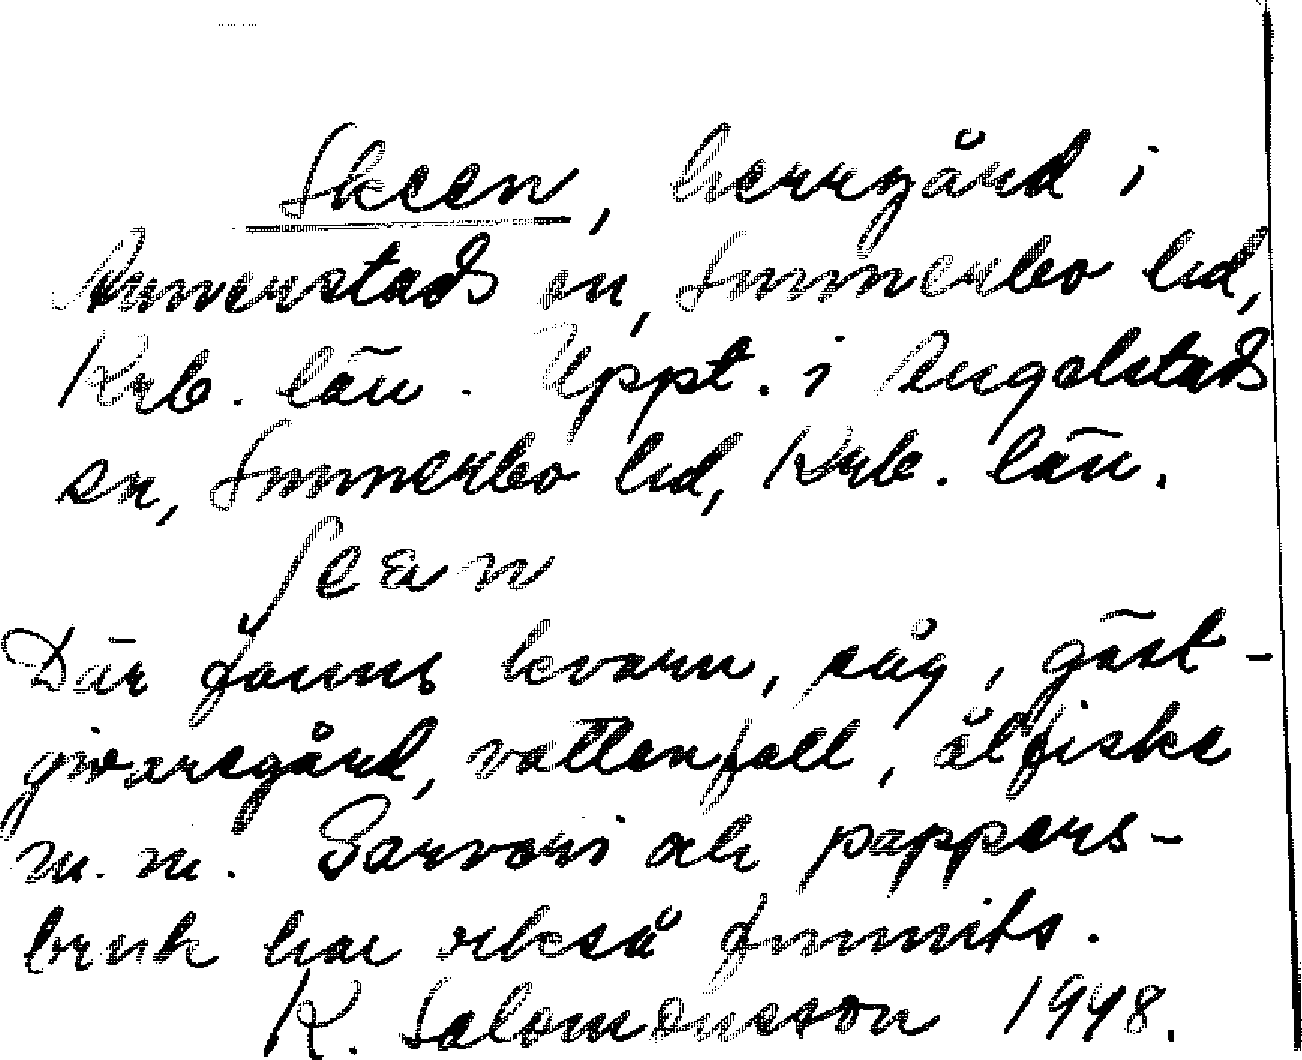 Skeen, herrgård i
Annerstads sn, Sunnerbo hd,
Krb. län. Uppt. i Angelstads
sn, Sunnerbo hd, Krb. län.
Där fanns kvarn, såg, gäst-
givaregård, vattenfall, ålfiske
m. m. Garveri och pappers-
bruk har också funnits.
K. Salomonsson 1948.